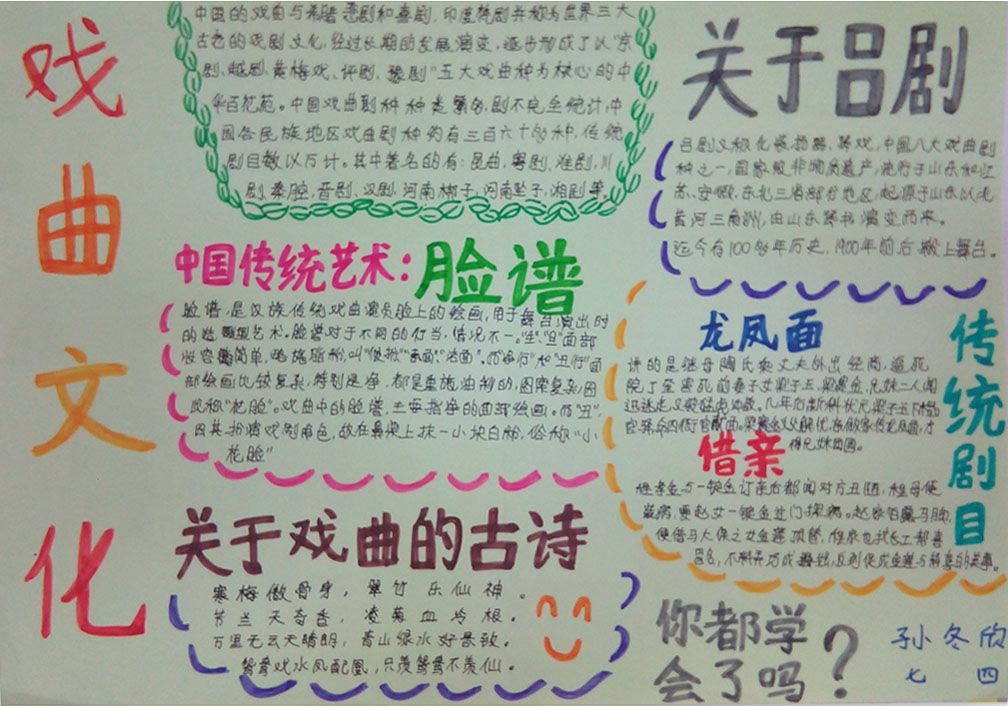 戏曲文化
中国的戏曲与希腊悲剧和喜剧,印度梵剧并称为世界三大
古老的戏剧文化,经过长期的发展演变,逐步形成了以“京
剧、越剧、黄梅戏、评剧、豫剧”五大戏曲种为核心的中
华百花苑。中国戏曲剧种种类繁多,剧不完全统计,中
国各民族地区戏曲剧种约有三百六十多种,传统
剧目数以万计。其中著名的有:昆曲、粤剧、淮剧、川
剧、秦腔、晋剧、汉剧、河南梆子、河南坠子、湘剧等。
中国传统艺术:脸谱
脸谱,是汉族传统戏曲演员脸上的绘画,用于舞台演出时
的造型艺术。脸谱对于不同的行当,情况不一。“生”、“旦”面部
妆容简单,略施脂粉,叫“俊扮”“素面”“洁面”。而“净行”和“丑行”面
部绘画比较复杂,特别是净,都是重施油彩的,图案复杂,因
此称“花脸”。戏曲中的脸谱,主要指净的面部绘画。而“丑”,
因其扮演戏剧角色,故在鼻梁上抹一小块白粉,俗称“小
花脸”
关于戏曲的古诗
寒梅傲骨身,翠竹乐仙神。
芳兰天奇香,凌菊血冷根。
万里无云天晴朗,青山绿水好景致。
鸳鸯戏水凤配凰,只羡鸳鸯不羡仙。
关于吕剧
吕剧又称化妆扬琴、琴戏,中国八大戏曲剧
种之一,国家级非物质遗产,流行于山东和江
苏、安徽、东北三省部分地区,起源于山东以北
黄河三角洲,由山东琴书演变而来。
迄今有100多年历史,1900年前后搬上舞台。
传统剧目
龙凤面
讲的是继母陶氏
兄妹二人闻
讯逃走又被猛虎冲散。几年后新科状元梁子玉下榻
得兄妹团圆。
借亲
订亲后都闻对方丑陋,祖母便
装病,要赵女一锭金过门探病。赵家怕露马脚,
便借马大保之女金莲顶替,程家也找长工郝喜
冒名,不料弄巧成拙,反到促成金莲与郝喜的美事。
你都学
会了吗?
孙冬欣
七四